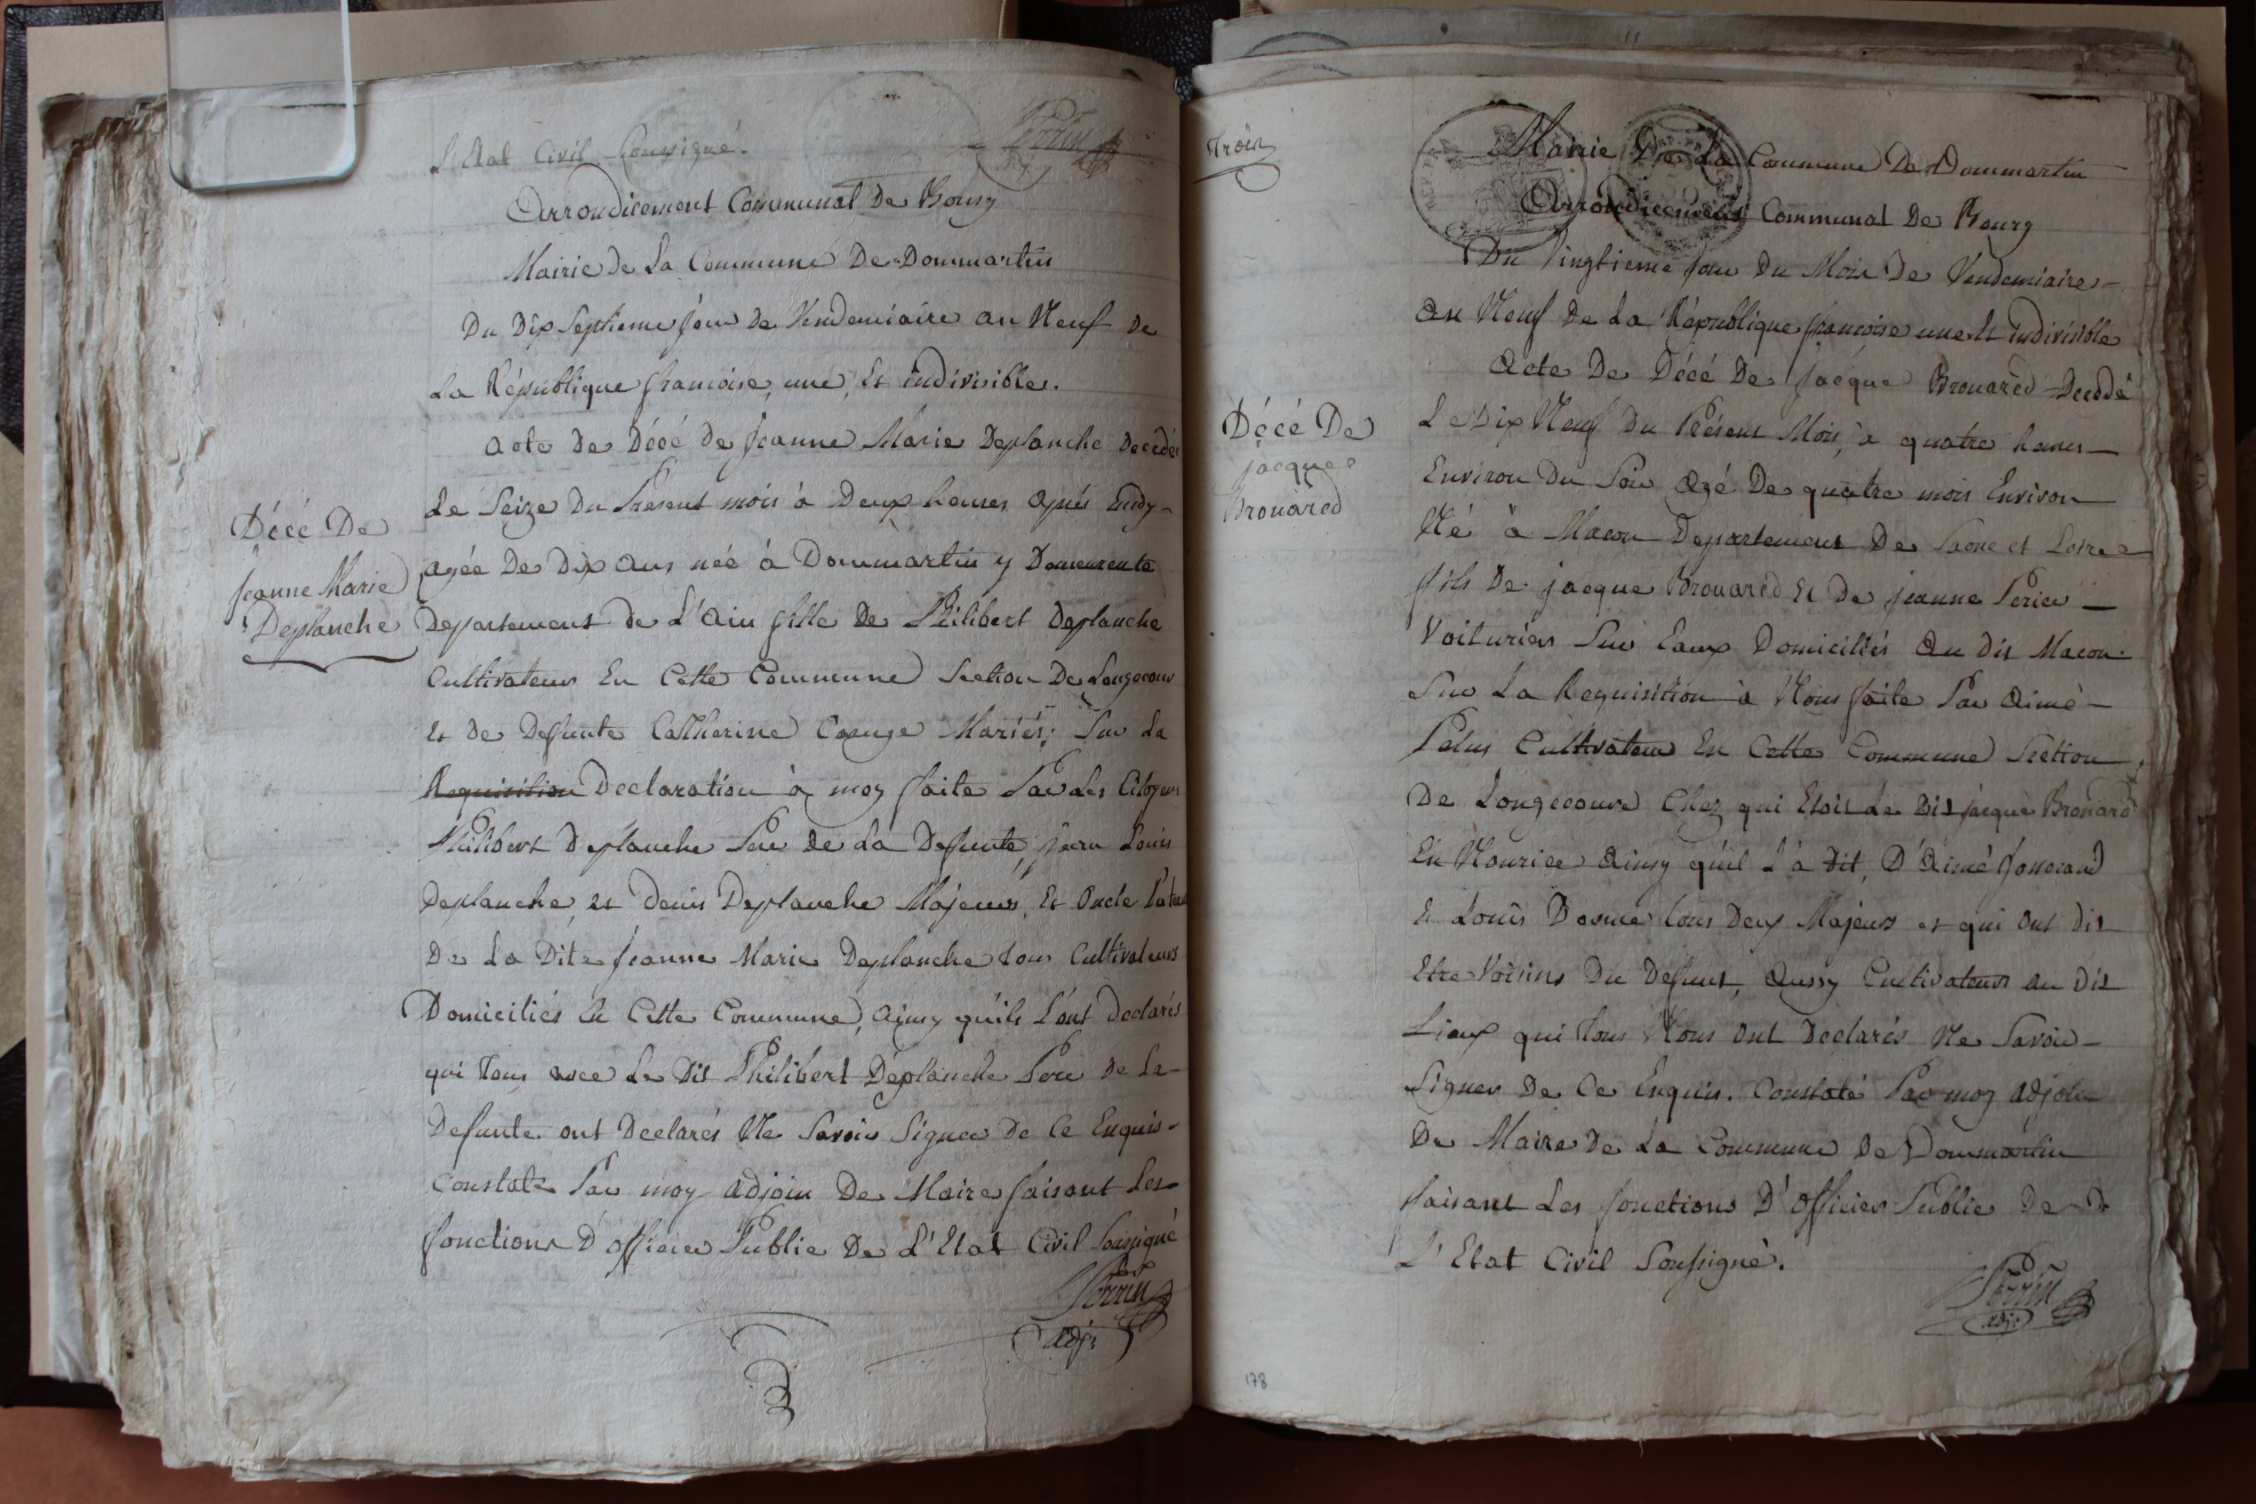 L'Etat Civil Soussigné.
Perrin
adj
Arrondicement Communal De Bourg
Mairie de La Commune De Dommartin
Du Dix Septieme jour De Vendemiaire an Neuf De
La République francoise, une, Et indivisible.
Acte De Décé De Jeanne Marie Deplanche Decedée
Le Seize Du Présent mois à Deux heures après midy
Décé De
Jeanne Marie
Deplanche
agée De Dix ans née à Dommartin y Demeurente
Departement de L'Ain fille De Philibert Deplanche
Cultivateur En Cette Commune Section De Longecour
Et de Defunte Catherine Mariés; Sur La
Requisition Declaration à moy faite Par Les Citoyens
Philibert Deplanche Pere de La Defunte, Jean Louis
Deplanche, et Denis Deplanche Majeurs, Et Oncle
De La Dite Jeanne Marie Deplanche tous Cultivateurs
Domiciliés En Cette Commune, Ainsy qu'ils L'ont Declarés
qui tous avec Le Dit Philibert Deplanche Pere De La
Defunte ont Declarés Ne Savoir Signer De Ce Enquis
Constaté Par moy adjoin De Maire faisant Les
fonctions D'officier Public De L'Etat Civil Soussigné
Perrin
adjt
Trois
Mairie De La Commune De Dommartin
Arrondicement Communal De Bourg
Du Vingtieme jour Du Mois De Vendemiaire
an Neuf De La République francoise une Et indivisible
Acte De Décé De jacque Brouared Decedé
Décé De
jacque
Brouared
Le Dix Neuf Du Présent Mois, à quatre heures
Environ Du Soir agé De quatre mois Environ
Né à Macon Departement De Saone et Loire
fils De jacque Brouared Et De jeanne Perier
Voiturier Sur Eaux Domiciliés Au Dit Macon.
Sur La Requisition à Nous faite Par Aimé
Pelus Cultivateur En Cette Commune Section
De Longecoure Chez qui Etoit Le Dit jacque Brouared
En Nourice Ainsy qu'il L'a Dit, D'Aimé
Et Louis Bosme tous Deux Majeurs et qui ont Dit
Etre Voisins Du Defunt, Aussy Cultivateurs au Dit
Lieux qui tous Nous ont Declarés Ne Savoir
Signer De Ce Enquis. Constaté Par moy adjoin
De Maire De La Commune De Dommartin
faisant Les fonctions D'officier Public De
L'Etat Civil Soussigné.
Perrin
adjt
178